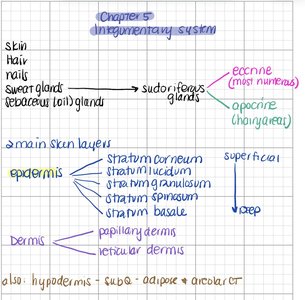 Chapter 5
Integumentary system
skin
Hair
nails
sweat glands
sebaceous (oil) glands
sudoriferous
glands
eccrine
(most numerous)
apocrine
(hairy areas)
2 main skin layers
epidermis
stratum corneum
stratum lucidum
stratum granulosum
stratum spinosum
stratum basale
superficial
DEEP
Dermis
papillary dermis
reticular dermis
also: hypodermis - subQ - adipose & areolar CT